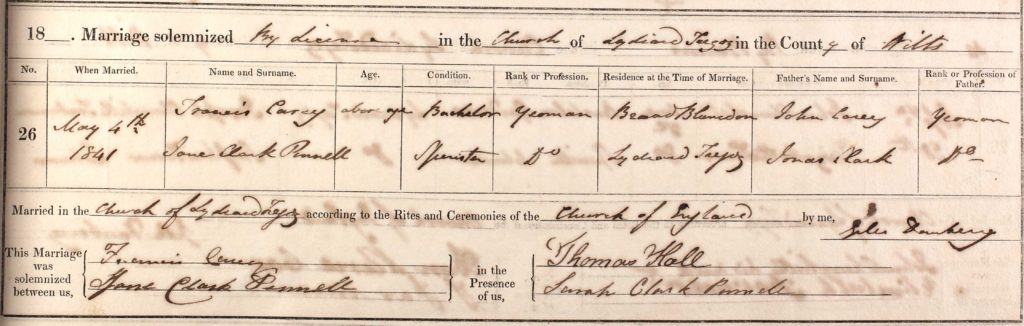 18__. Marriage solemnized By Licence in the Church of Lydiard Tregoz in the County of Wilts
No. When Married. Name and Surname. Age. Condition. Rank or Profession. Residence at the Time of Marriage. Father's Name and Surname. Rank or Profession of Father.
26 May 4th 1841 Francis Carey above age Bachelor Yeoman Broad Blunsdon John Carey Yeoman
Jane Clark Pinnell Do Spinster Do Lydiard Tregoz Jonas Clark Do
Married in the Church of Lydiard Tregoz according to the Rites and Ceremonies of the Church of England by me, Giles Daubeny
This Marriage was solemnized between us, Francis Carey in the Presence of us, Thomas Hall
Jane Clark Pinnell Sarah Clark Pinnell